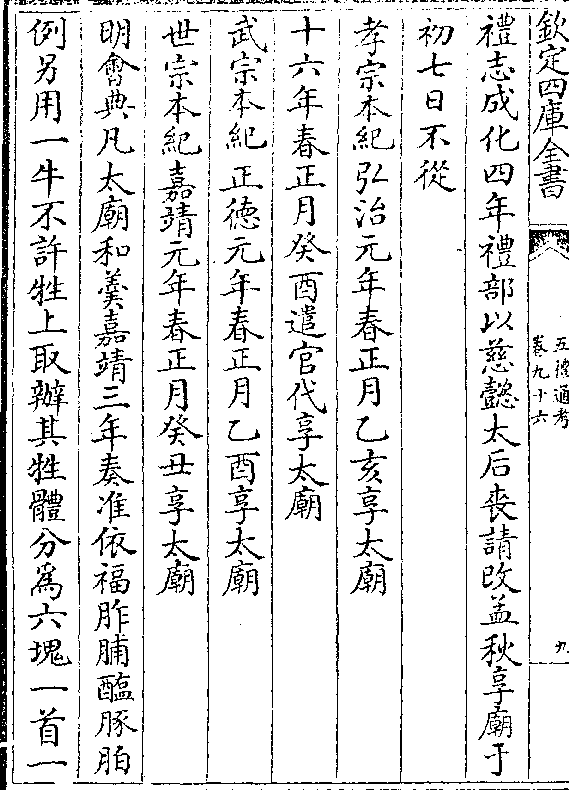 欽定四庫全書
五禮通考
卷九十六
九
禮志成化四年禮部以慈懿太后喪請改孟秋享廟于
初七日不從
孝宗本紀弘治元年春正月乙亥享太廟
十六年春正月癸酉遣官代享太廟
武宗本紀正德元年春正月乙酉享太廟
世宗本紀嘉靖元年春正月癸丑享太廟
明會典凡太廟和羹嘉靖三年奏准依福胙脯醢豚胉
例另用一牛不許牲上取辦其牲體分為六塊一首一